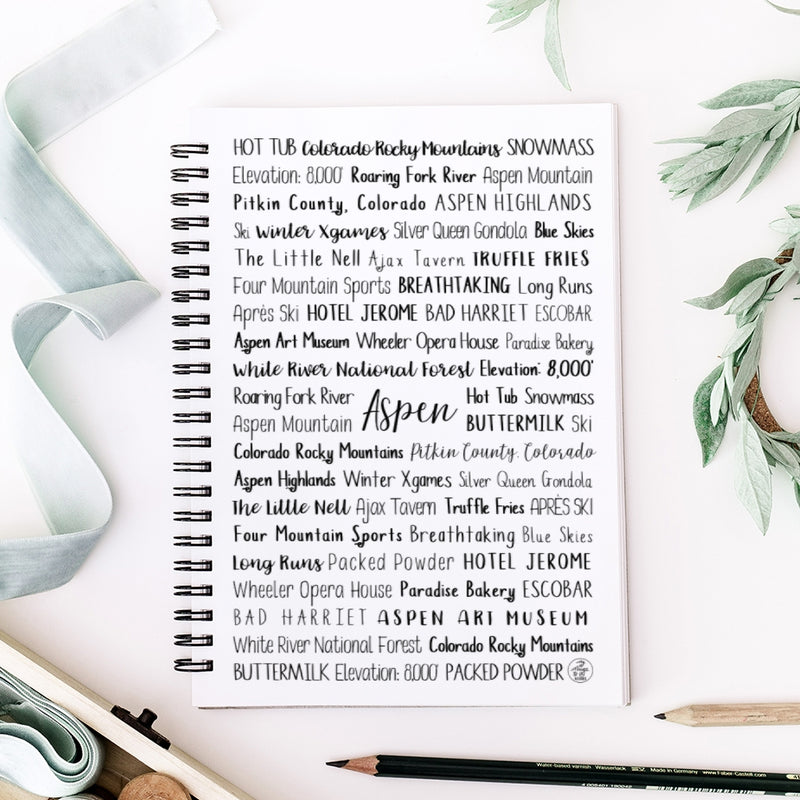 HOT TUB Colorado Rocky Mountains SNOWMASS
Elevation: 8,000' Roaring Fork River Aspen Mountain
Pitkin County, Colorado ASPEN HIGHLANDS
Ski Winter Xgames Silver Queen Gondola Blue Skies
The Little Nell Ajax Tavern TRUFFLE FRIES
Four Mountain Sports BREATHTAKING Long Runs
Après Ski HOTEL JEROME BAD HARRIET ESCOBAR
Aspen Art Museum Wheeler Opera House Paradise Bakery
White River National Forest Elevation: 8,000'
Roaring Fork River Hot Tub Snowmass
Aspen
Aspen Mountain BUTTERMILK Ski
Colorado Rocky Mountains Pitkin County, Colorado
Aspen Highlands Winter Xgames Silver Queen Gondola
The Little Nell Ajax Tavern Truffle Fries APRÈS SKI
Four Mountain Sports Breathtaking Blue Skies
Long Runs Packed Powder HOTEL JEROME
Wheeler Opera House Paradise Bakery ESCOBAR
BAD HARRIET ASPEN ART MUSEUM
White River National Forest Colorado Rocky Mountains
BUTTERMILK Elevation: 8,000' PACKED POWDER
Water-based varnish Wasserlack Made in Germany www.Faber-Castell.com